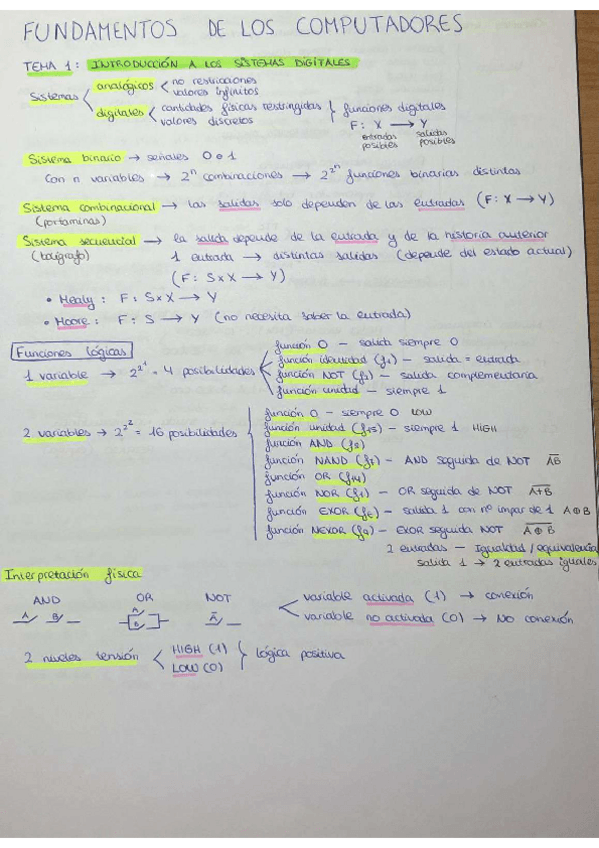 FUNDAMENTOS DE LOS COMPUTADORES
TEMA 1: INTRODUCCIÓN A LOS SISTEMAS DIGITALES
Sistemas
analógicos
no restricciones
valores infinitos
digitales
cantidades físicas restringidas
valores discretos
funciones digitales
F: X → Y
entradas posibles
salidas posibles
Sistema binario → señales 0 o 1
Con n variables → 2^n combinaciones → 2^2^n funciones binarias distintas
Sistema combinacional → las salidas solo dependen de las entradas (F: X → Y)
(portaminas)
Sistema secuencial → la salida depende de la entrada y de la historia anterior
(bolígrafo) 1 entrada → distintas salidas (depende del estado actual)
(F: S x X → Y)
• Mealy: F: S x X → Y
• Moore: F: S → Y (no necesita saber la entrada)
Funciones lógicas
1 variable → 2^2^1 = 4 posibilidades
función 0 – salida siempre 0
función identidad (f1) – salida = entrada
función NOT (f2) – salida complementaria
función unidad – siempre 1
2 variables → 2^2^2 = 16 posibilidades
función 0 – siempre 0 LOW
función unidad (f15) – siempre 1 HIGH
función AND (f8)
función NAND (f7) – AND seguida de NOT A̅B̅
función OR (f14)
función NOR (f1) – OR seguida de NOT A̅+̅B̅
función EXOR (f6) – salida 1 con nº impar de 1 A⊕B
función NEXOR (f9) – EXOR seguida NOT A̅⊕̅B̅
2 entradas – Igualdad/equivalencia
salida 1 → 2 entradas iguales
Interpretación física
AND OR NOT
A B
A
B
A̅
variable activada (1) → conexión
variable no activada (0) → NO conexión
2 niveles tensión
HIGH (1)
LOW (0)
lógica positiva